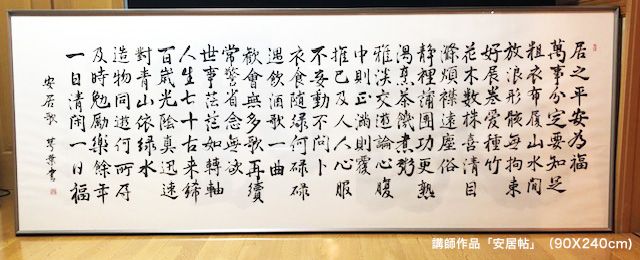 居之平安為福
萬事分定要知足
粗衣布履山水間
放浪形骸無拘束
好展卷愛種竹
花木數株喜清目
滌煩襟遠塵俗
靜裡蒲團功更熟
渴烹茶饑煮粥
雅淡交遊論心腹
中則正滿則覆
推己及人人心服
不妄動不問卜
衣食隨緣何碌碌
遇飲酒歌一曲
歡會無多歌再續
常警省念無欲
世事茫茫如轉軸
人生七十古來稀
百歲光陰真迅速
對青山依綠水
造物同遊何所辱
及時勉勵樂餘年
一日清閑一日福
安居歌 書
講師作品「安居帖」（90X240cm）